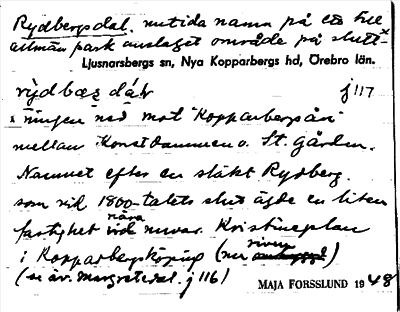 Rydbergsdal. nutida namn på ett till
allmän park anslaget område på slutt-x
Ljusnarsbergs sn, Nya Kopparbergs hd, Örebro län.
rỳdbæʒdáɫ j 117
x ningen ned mot Kopparbergsån
mellan Konstdammen o. St. Gården.
Namnet efter en släkt Rydberg.
som vid 1800-talets slut ägde en liten
nära
fastighet vid nuvar. Kristineplan
i Kopparbergs köping (nu riven)
(se äv. Margretedal. j 116)
MAJA FORSSLUND 1948